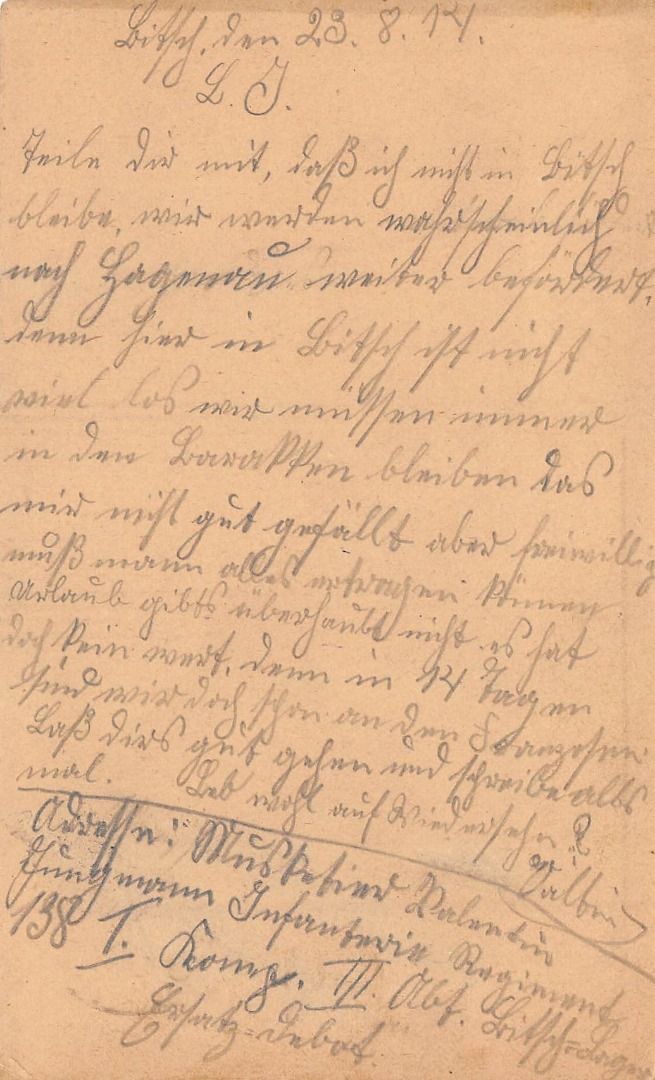 Bitsch, den 23. 8. 14.
L. J.
Teile dir mit, daß ich nicht in Bitsch
bleibe, wir werden wahrscheinlich
nach Hagenau weiter befördert,
denn hier in Bitsch ist nicht
viel los wir müssen immer
in den Barakken bleiben das
mir nicht gut gefällt aber freiwillig
muß mann alles ertragen können
Urlaub gibts überhaubt nicht es hat
doch kein wert, denn in 14 Tagen
sind wir doch schon an den Franzosen.
Laß dirs gut gehen und schreibe alls
mal. Leb wohl auf Wiedersehn
Adresse: Musketier Valentin
Jungmann Infanterie Regiment
138 I. Komp. III. Abt. Bitsch-Lager
Ersatz-Debot.